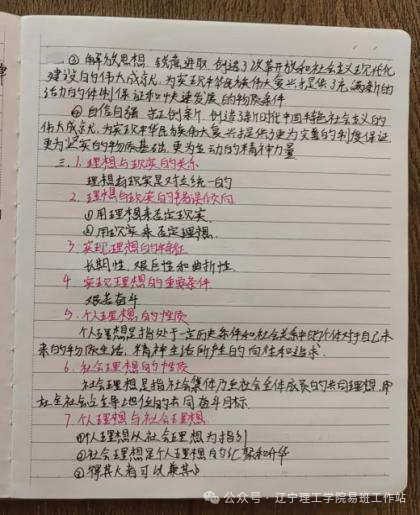 ③解放思想、锐意进取,创造了改革开放和社会主义现代化
建设的伟大成就,为实现中华民族伟大复兴提供了充满新的
活力的体制保证和快速发展的物质条件
④自信自强、守正创新,创造了新时代中国特色社会主义的
伟大成就,为实现中华民族伟大复兴提供了更为完善的制度保证
更为坚实的物质基础、更为主动的精神力量
三、1.理想与现实的关系
理想与现实是对立统一的
2.理想与现实的错误倾向
①用理想来否定现实
②用现实来否定理想
3.实现理想的特征
长期性、艰巨性和曲折性
4.实现理想的重要条件
艰苦奋斗
5.个人理想的性质
个人理想是指处于一定历史条件和社会关系中的个体对于自己未
来的物质生活、精神生活所产生的向往和追求
6.社会理想的性质
社会理想是指社会集体乃至社会全体成员的共同理想,即
在全社会占主导地位的共同奋斗目标
7.个人理想与社会理想
①个人理想以社会理想为指引
②社会理想是个人理想的汇聚和升华
③得其大者可以兼其小
公众号·辽宁理工学院易班工作站